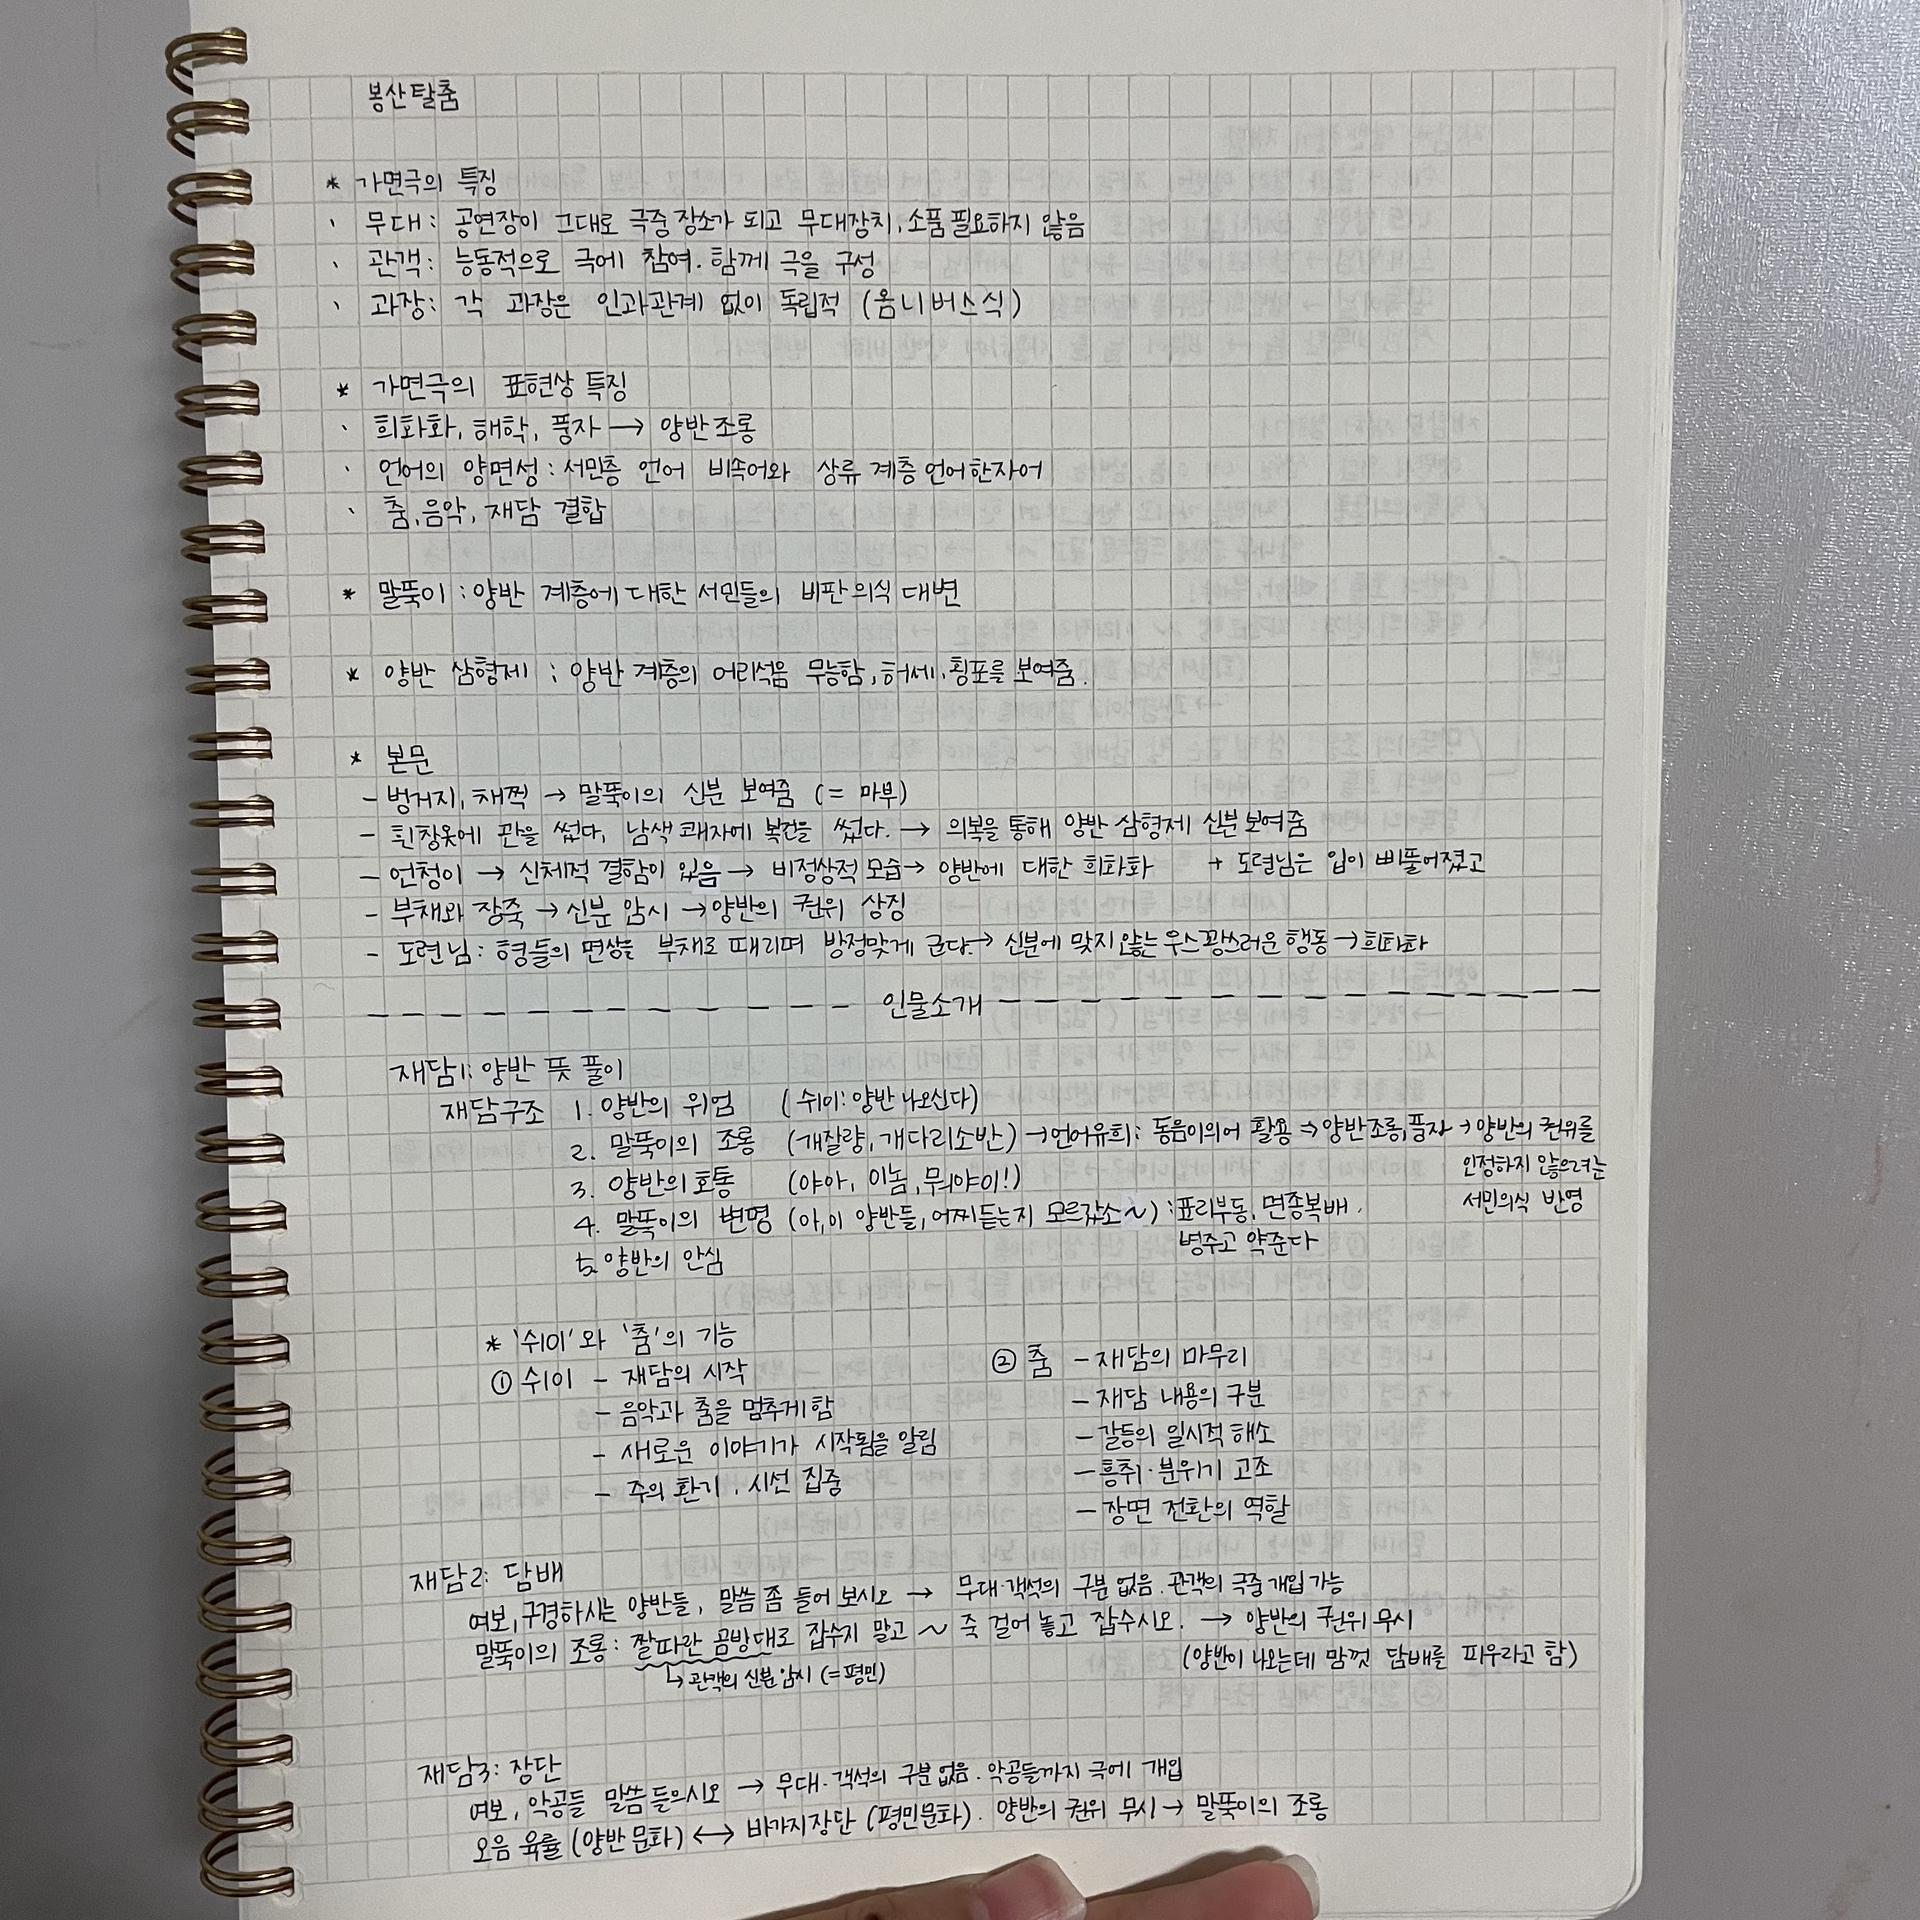 봉산탈춤
* 가면극의 특징
· 무대: 공연장이 그대로 극중 장소가 되고 무대장치, 소품 필요하지 않음
· 관객: 능동적으로 극에 참여. 함께 극을 구성
· 과장: 각 과장은 인과관계 없이 독립적 (옴니버스식)
* 가면극의 표현상 특징
· 희화화, 해학, 풍자 → 양반 조롱
· 언어의 양면성: 서민층 언어 비속어와 상류 계층 언어 한자어
· 춤, 음악, 재담 결합
* 말뚝이: 양반 계층에 대한 서민들의 비판 의식 대변
* 양반 삼형제: 양반 계층의 어리석음 무능함, 허세, 횡포를 보여줌.
* 본문
- 벙거지, 채찍 → 말뚝이의 신분 보여줌 (= 마부)
- 흰창옷에 관을 썼다, 남색 쾌자에 복건을 썼다. → 의복을 통해 양반 삼형제 신분 보여줌
- 언청이 → 신체적 결함이 있음 → 비정상적 모습 → 양반에 대한 희화화 + 도련님은 입이 삐뚤어졌고
- 부채와 장죽 → 신분 암시 → 양반의 권위 상징
- 도련님: 형들의 면상을 부채로 때리며 방정맞게 군다. → 신분에 맞지 않는 우스꽝스러운 행동 → 희화화
인물소개
재담1: 양반 뜻 풀이
재담구조 1. 양반의 위엄 (쉬이: 양반 나오신다)
2. 말뚝이의 조롱 (개잘량, 개다리소반) → 언어유희: 동음이의어 활용 ⇒ 양반 조롱, 풍자 → 양반의 권위를
인정하지 않으려는
3. 양반의 호통 (야아, 이놈, 뭐야아!)
서민의식 반영
4. 말뚝이의 변명 (아, 이 양반들, 어찌 듣는지 모르갔소~) : 표리부동, 면종복배.
병주고 약준다
5. 양반의 안심
* '쉬이'와 '춤'의 기능
① 쉬이 - 재담의 시작
- 음악과 춤을 멈추게 함
- 새로운 이야기가 시작됨을 알림
- 주의 환기, 시선 집중
② 춤 - 재담의 마무리
- 재담 내용의 구분
- 갈등의 일시적 해소
- 흥취·분위기 고조
- 장면 전환의 역할
재담2: 담배
여보, 구경하시는 양반들, 말씀 좀 들어 보시오 → 무대·객석의 구분 없음. 관객의 극중 개입 가능
말뚝이의 조롱: 짤따란 곰방대로 잡수지 말고 ~ 죽 걸어 놓고 잡수시오. → 양반의 권위 무시
↳ 관객의 신분 암시 (= 평민)
(양반이 나오는데 맘껏 담배를 피우라고 함)
재담3: 장단
여보, 악공들 말씀 들으시오 → 무대·객석의 구분 없음. 악공들까지 극에 개입
오음 육률 (양반 문화) ↔ 바가지장단 (평민문화). 양반의 권위 무시 → 말뚝이의 조롱